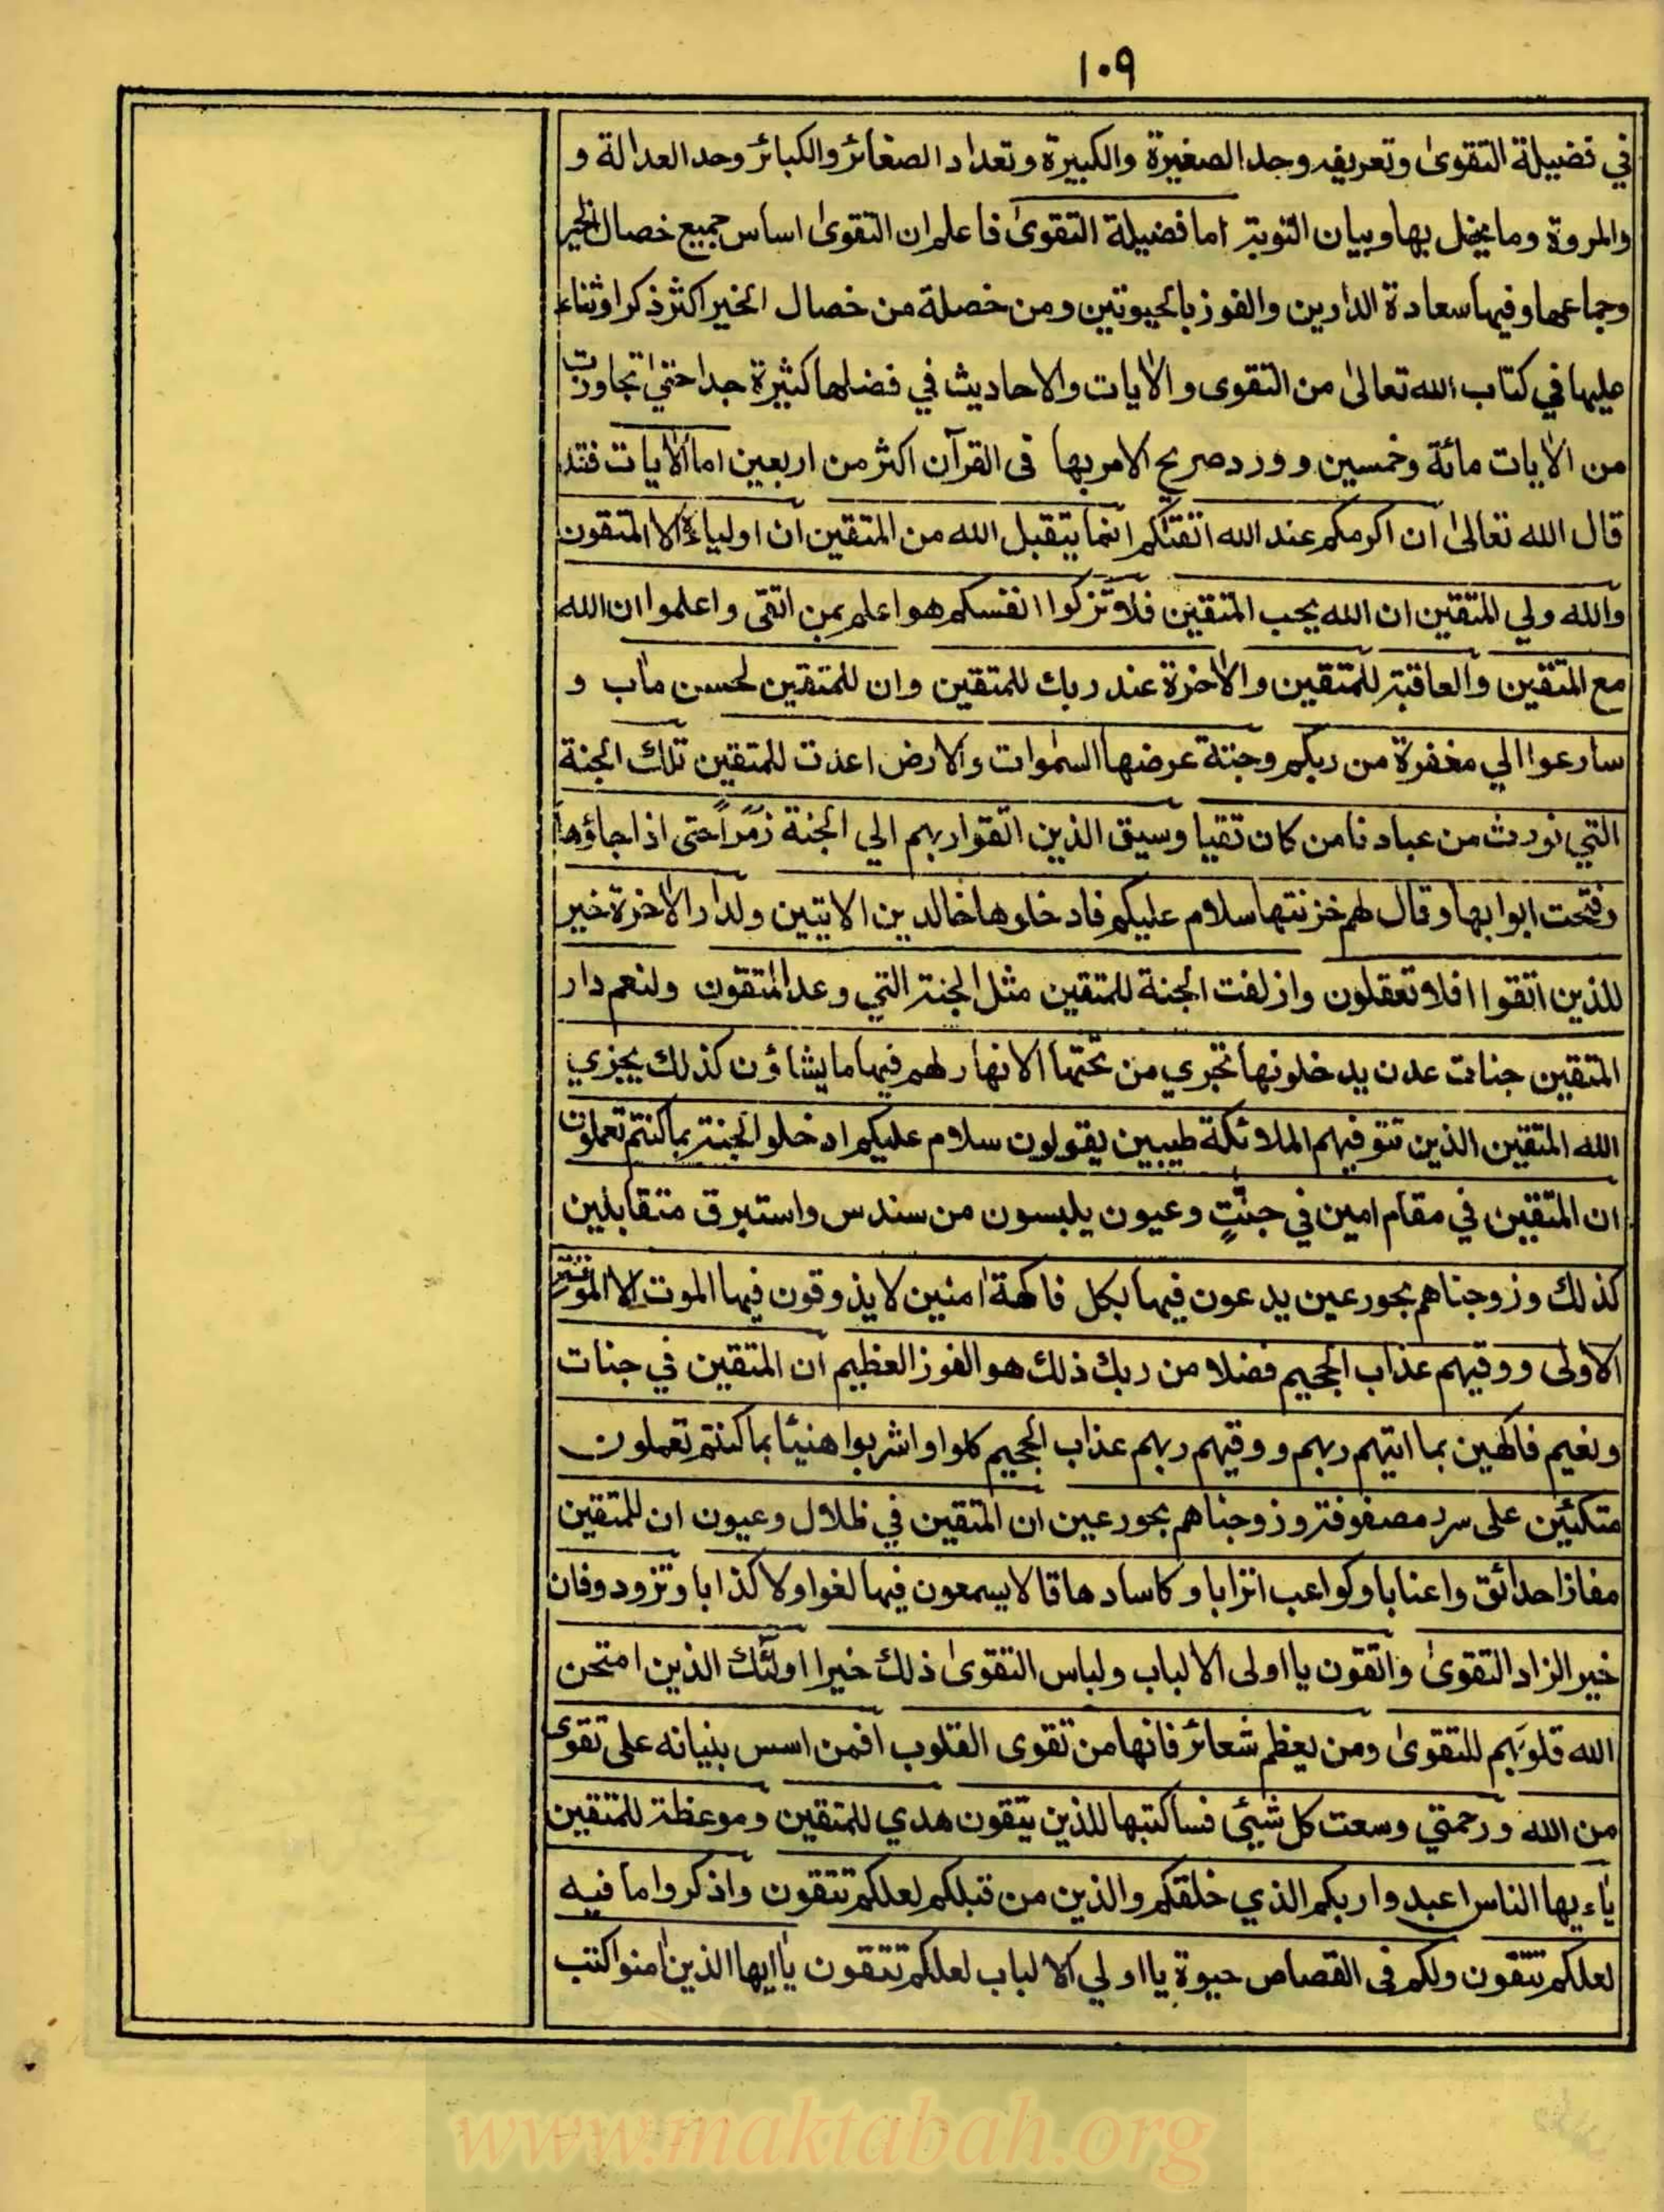 ١٠٩
في فضيلة التقوىٰ وتعريفه وحد الصغيرة والكبيرة وتعداد الصغائر والكبائر وحد العدالة و
والمروة وما يخل بها وبيان التوبة اما فضيلة التقوىٰ فاعلم ان التقوىٰ اساس جميع خصال الخير
وجماعها وفيها سعادة الدارين والفوز بالحيوتين ومن خصلة من خصال الخير اكثر ذكرا وثناء
عليها في كتاب الله تعالىٰ من التقوى والاٰيات والاحاديث في فضلها كثيرة جدا حتىٰ تجاوزت
من الاٰيات مائة وخمسين وورد صريح الامر بها فى القرآن اكثر من اربعين اما الاٰيات فقد
قال الله تعالىٰ ان اكرمكم عند الله اتقٰكم انما يتقبل الله من المتقين ان اولياءه الا المتقون
والله ولي المتقين ان الله يحب المتقين فلا تزكوا انفسكم هو اعلم بمن اتقى واعلموا ان الله
مع المتقين والعاقبة للمتقين والاٰخرة عند ربك للمتقين وان للمتقين لحسن ماٰب و
سارعوا الي مغفرة من ربكم وجنة عرضها السمٰوات والارض اعدت للمتقين تلك الجنة
التي نورث من عبادنا من كان تقيا وسيق الذين اتقوا ربهم الي الجنة زمَراً حتى اذا جاؤها
وفتحت ابوابها وقال لهم خزنتها سلام عليكم فادخلوها خالدين الايتين ولدار الاٰخرة خير
للذين اتقوا افلا تعقلون وازلفت الجنة للمتقين مثل الجنة التي وعد المتقون ولنعم دار
المتقين جنات عدن يدخلونها تجري من تحتها الانهار لهم فيها ما يشاؤن كذلك يجزي
الله المتقين الذين تتوفيهم الملائكة طيبين يقولون سلام عليكم ادخلو الجنة بما كنتم تعملون
ان المتقين في مقام امين في جنّٰتٍ وعيون يلبسون من سندس واستبرق متقابلين
كذلك وزوجناهم بحور عين يدعون فيها بكل فاكهة اٰمنين لا يذوقون فيها الموت الا الموتة
الاولى ووقيهم عذاب الجحيم فضلا من ربك ذلك هو الفوز العظيم ان المتقين في جنات
ونعيم فاكهين بما اتيهم ربهم ووقيهم ربهم عذاب الجحيم كلوا واشربوا هنيئا بما كنتم تعملون
متكئين على سرر مصفوفة وزوجناهم بحور عين ان المتقين في ظلال وعيون ان للمتقين
مفازا حدائق واعنابا وكواعب اترابا وكاسا دهاقا لا يسمعون فيها لغوا ولا كذابا وتزودوفان
خير الزاد التقوىٰ واتقون يا اولى الالباب ولباس التقوىٰ ذلك خيرا اولئك الذين امتحن
الله قلوبَهم للتقوىٰ ومن يعظم شعائر فانها من تقوى القلوب افمن اسس بنيانه على تقوى
من الله ورحمتي وسعت كل شيئى فساكتبها للذين يتقون هدي للمتقين وموعظة للمتقين
يٰاءيها الناس اعبدوا ربكم الذي خلقكم والذين من قبلكم لعلكم تتقون واذكروا ما فيه
لعلكم تتقون ولكم فى القصاص حيوة يا اولي الالباب لعلكم تتقون يٰاايها الذين اٰمنوا كتب
www.maktabah.org